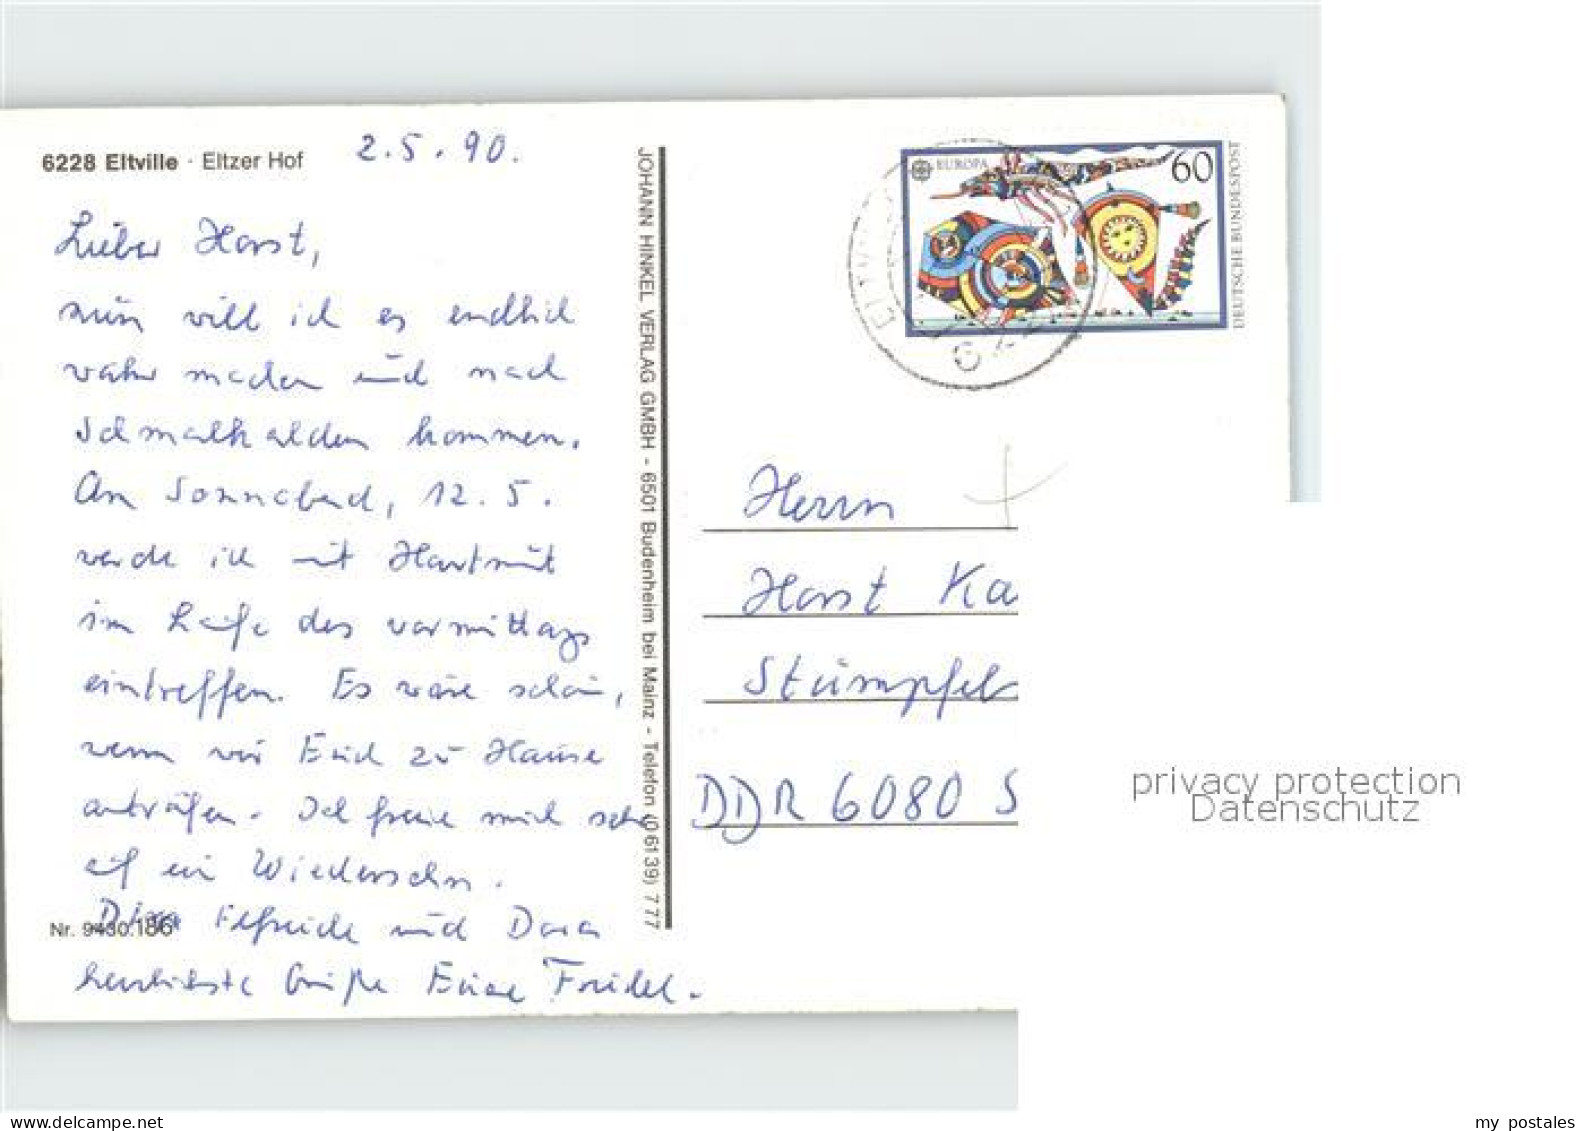 6228 Eltville · Eltzer Hof
2.5.90.
Lieber Horst,
nun will ich es endlich
wahr machen und nach
Schmalkalden kommen.
Am Sonnabend, 12.5.
werde ich mit Hartmut
im Laufe des vormittags
eintreffen. Es wäre schön,
wenn wir Euch zu Hause
anträfen. Ich freue mich sehr
auf ein Wiedersehn.
Dir, Elfriede und Dora
Nr. 9430.186
herzlichste Grüße Eure Friedel.
JOHANN HINKEL VERLAG GMBH - 6501 Budenheim bei Mainz - Telefon (0 61 39) 7 77
EUROPA
60
DEUTSCHE BUNDESPOST
ELTVILLE
Herrn
Horst Ka
Stümpfel
DDR 6080 S
privacy protection
Datenschutz
my postales